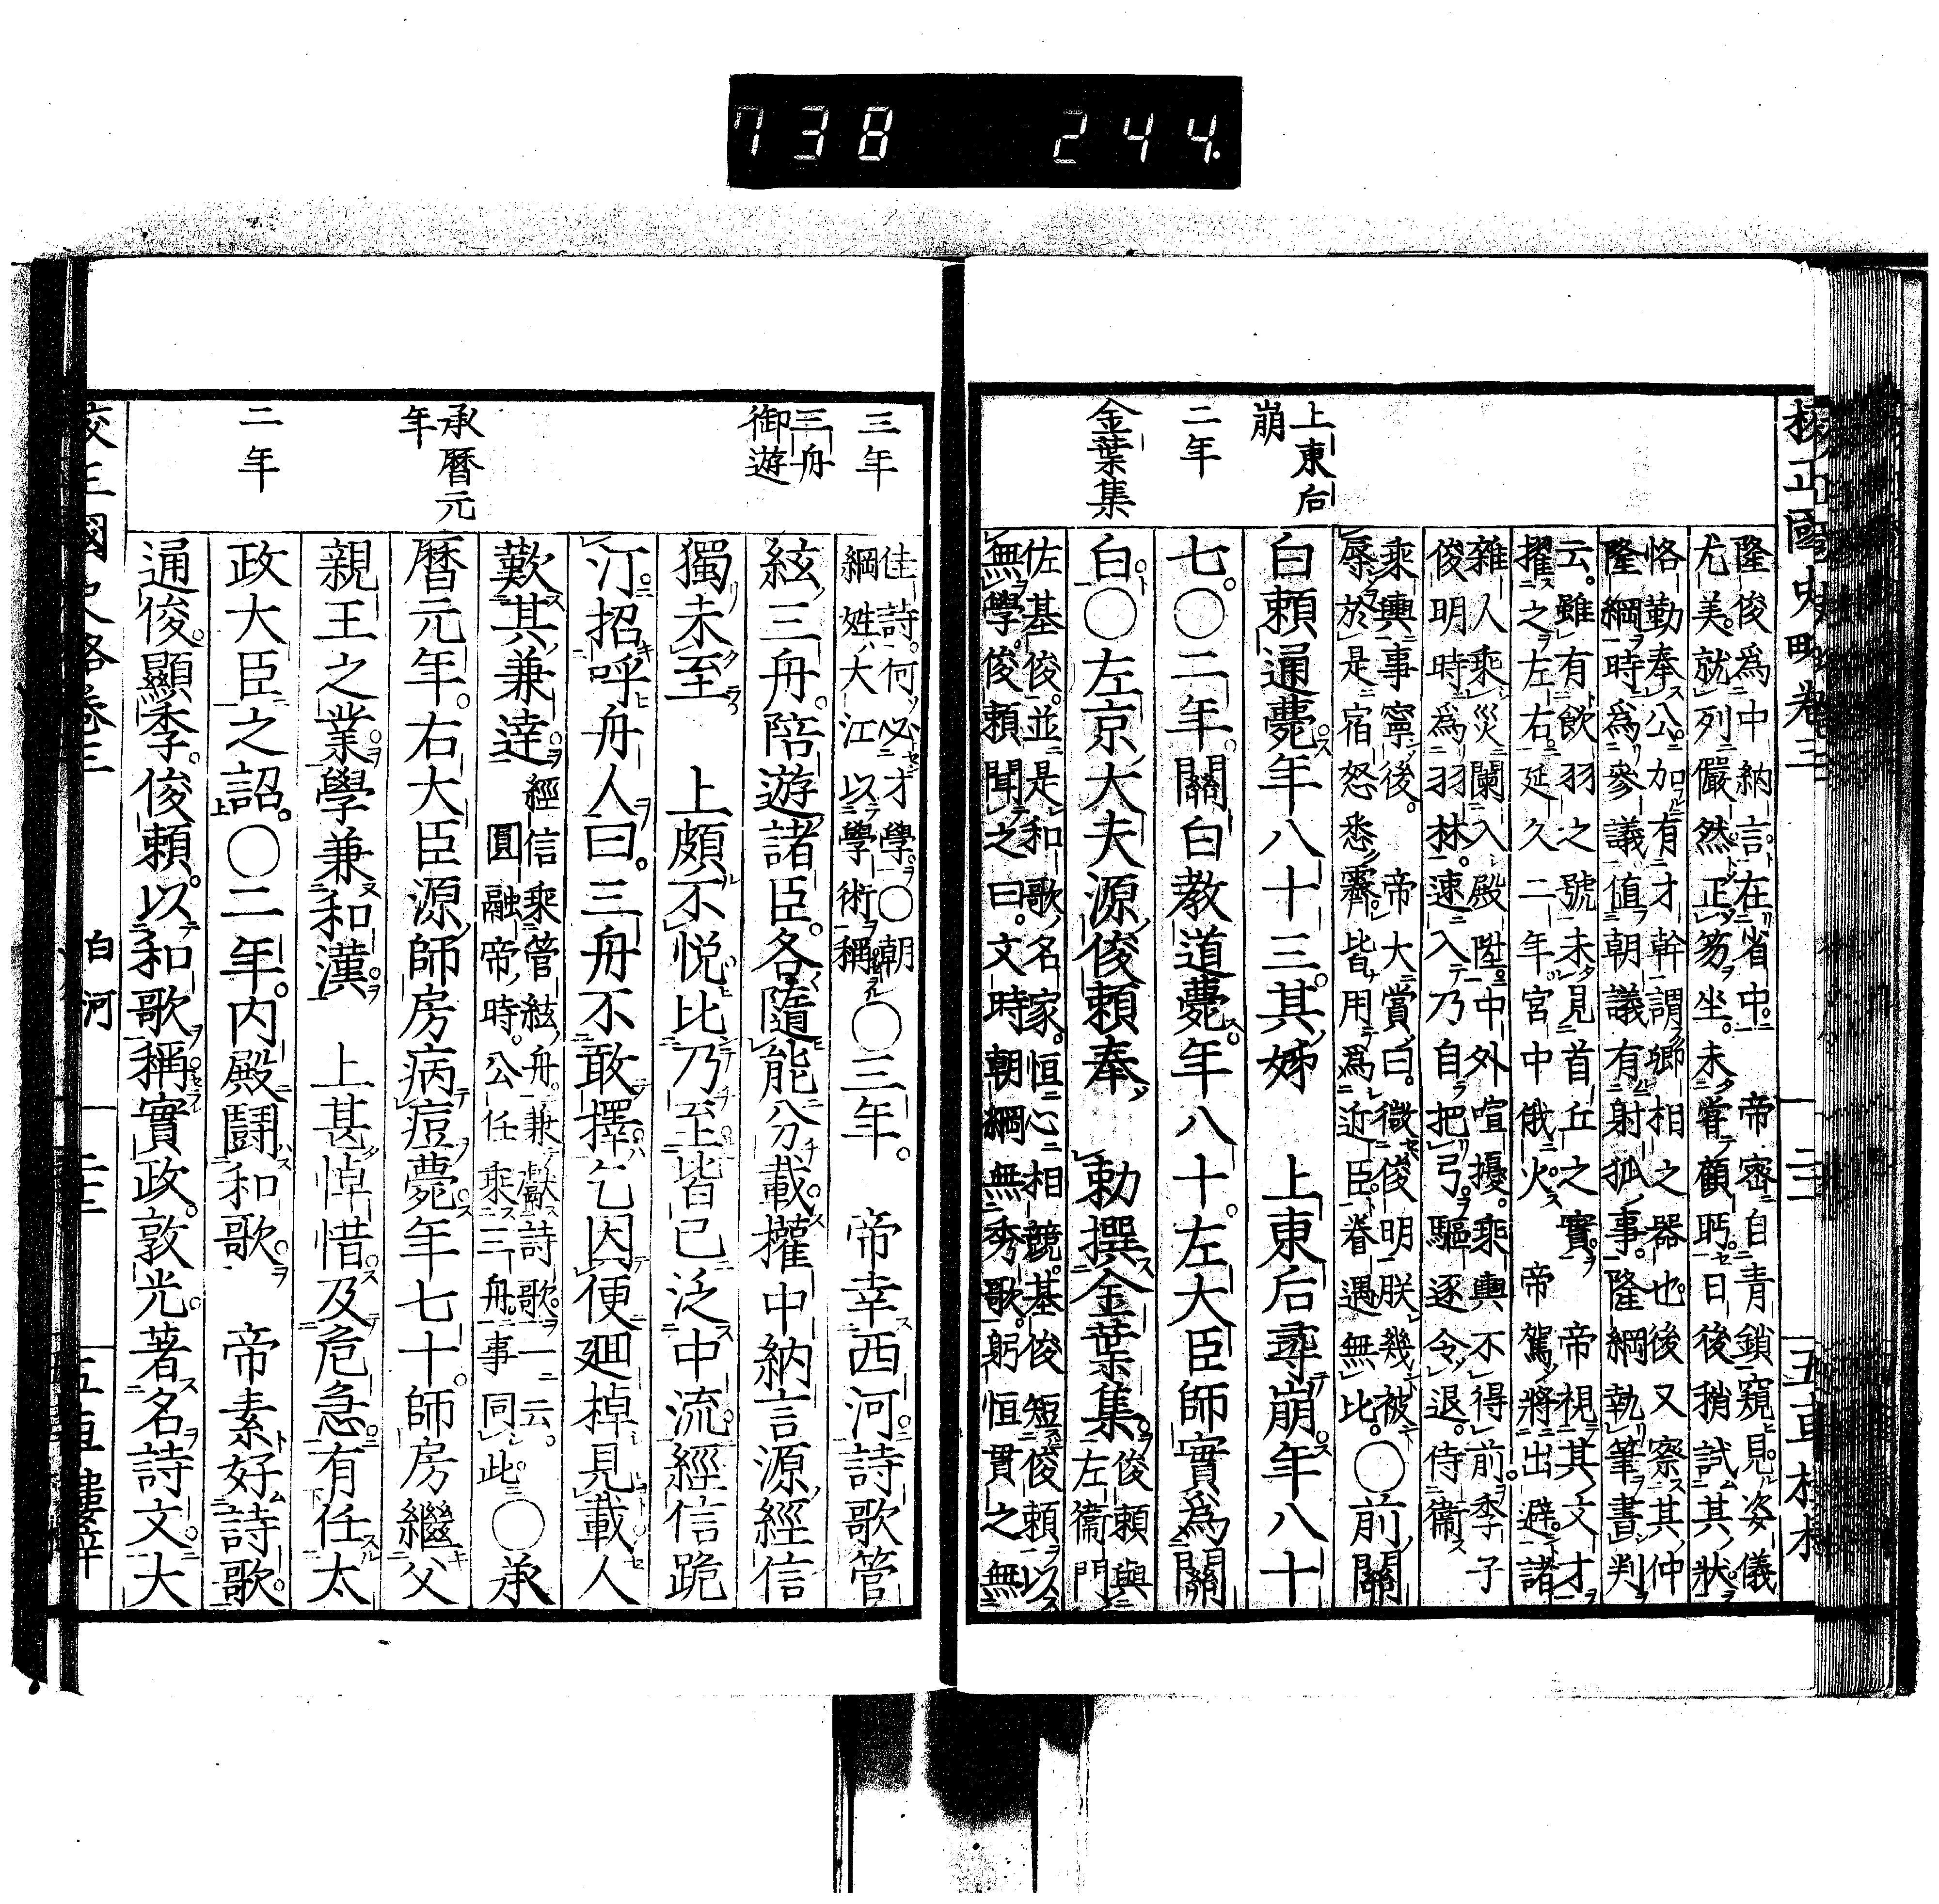 738 244
校正國史略卷三
上東后
崩
二年
金葉集
隆俊爲中納言在省中帝密自青鎖窺見姿儀
尤美就列儼然正笏坐未嘗顧眄日後稍試其狀
恪勤奉公加有才幹謂卿相之器也後又察其仲
隆綱時爲參議值朝議有射狐事隆綱執筆書判
云雖有飲羽之號未見首丘之實帝視其文才
擢之左右延久二年宮中俄火帝駕將出避諸
雜人乘災闌入殿陛中外喧擾乘輿不得前季子
俊明時爲羽林速入乃自把弓驅逐令退侍衞
乘輿事寧後帝大賞曰微俊明朕幾被
辱於是宿怒悉霽皆用爲近臣眷遇無比○前關
白賴通薨年八十三其姊上東后尋崩年八十
七○二年關白教道薨年八十左大臣師實爲關
白○左京大夫源俊賴奉勅撰金葉集俊賴與
左衞門
佐基俊並是和歌名家恒心相競基俊短俊賴以
無學俊賴聞之曰文時朝綱無秀歌躬恒貫之無
三年
三舟
御遊
承曆元
年
二年
佳詩何必才學○朝
綱姓大江以學術稱○三年帝幸西河詩歌管
絃三舟陪遊諸臣各隨能分載權中納言源經信
獨未至上頗不悅比乃至皆已泛中流經信跪
汀招呼舟人曰三舟不敢擇乞因便廻棹見載人
歎其兼達經信乘管絃舟兼獻詩歌一云
圓融帝時公任乘三舟事同此○承
曆元年右大臣源師房病痘薨年七十師房繼父
親王之業學兼和漢上甚悼惜及危急有任太
政大臣之詔○二年內殿鬪和歌帝素好詩歌
通俊顯季俊賴以和歌稱實政敦光著名詩文大
校正國史略卷三
白河